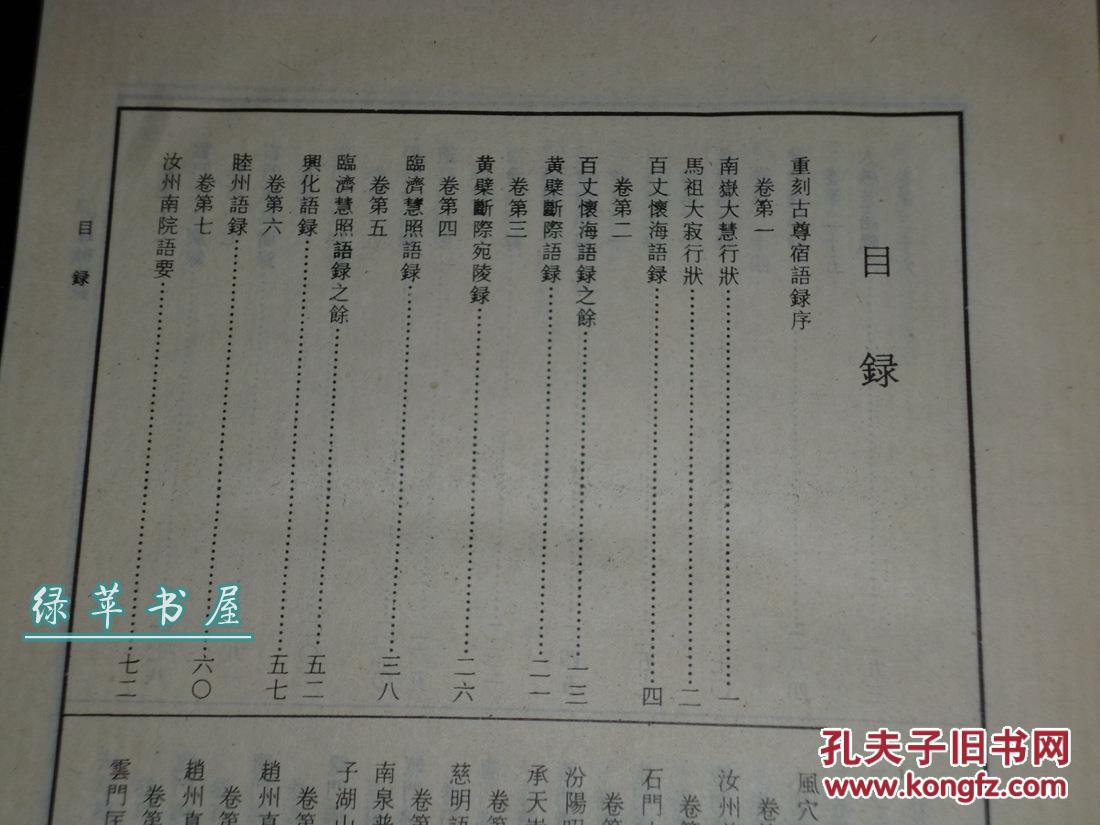 目録
重刻古尊宿語録序
卷第一
南嶽大慧行狀……一
馬祖大寂行狀……二
百丈懷海語録……四
卷第二
百丈懷海語録之餘……一三
黄檗斷際語録……二一
卷第三
黄檗斷際宛陵録……二六
卷第四
臨濟慧照語録……三八
卷第五
臨濟慧照語録之餘……五二
興化語録……五七
卷第六
睦州語録……六〇
卷第七
汝州南院語要……七二
目録
風穴
卷
汝州
卷第
石門
卷
汾陽
承天
卷第
慈明語
卷第
南泉普
子湖山
卷第
趙州真
卷第
趙州真
卷第
雲門匡
绿苹书屋
孔夫子旧书网
www.kongfz.com